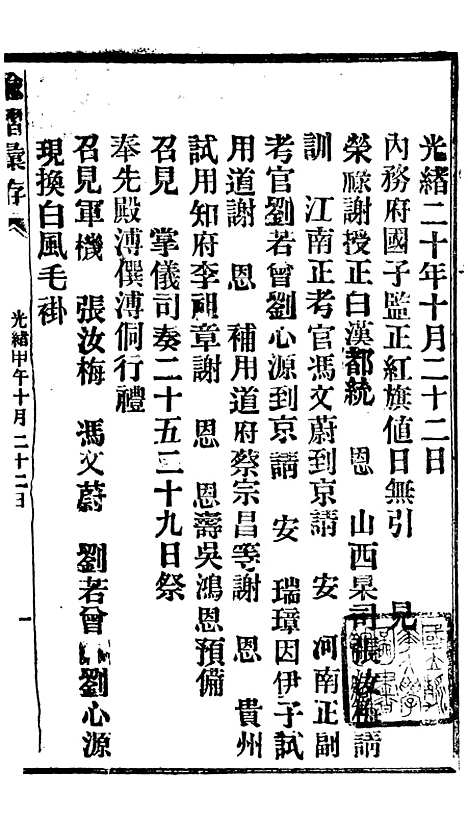 光緒二十年十月二十二日
內務府國子監正紅旗值日無引 見
榮祿謝授正白漢都統 恩 山西臬司張汝梅請
訓 江南正考官馮文蔚到京請 安 河南正副
考官劉若曾劉心源到京請 安 瑞璋因伊子試
用道謝 恩 補用道府蔡宗昌等謝 恩 貴州
試用知府李祖章謝 恩 恩壽吳鴻恩預備
召見 掌儀司奏二十五二十九日祭
奉先殿溥僎溥侗行禮
召見軍機 張汝梅 馮文蔚 劉若曾 劉心源
現換白風毛褂
諭摺彙存 光緒甲午十月二十二日 一